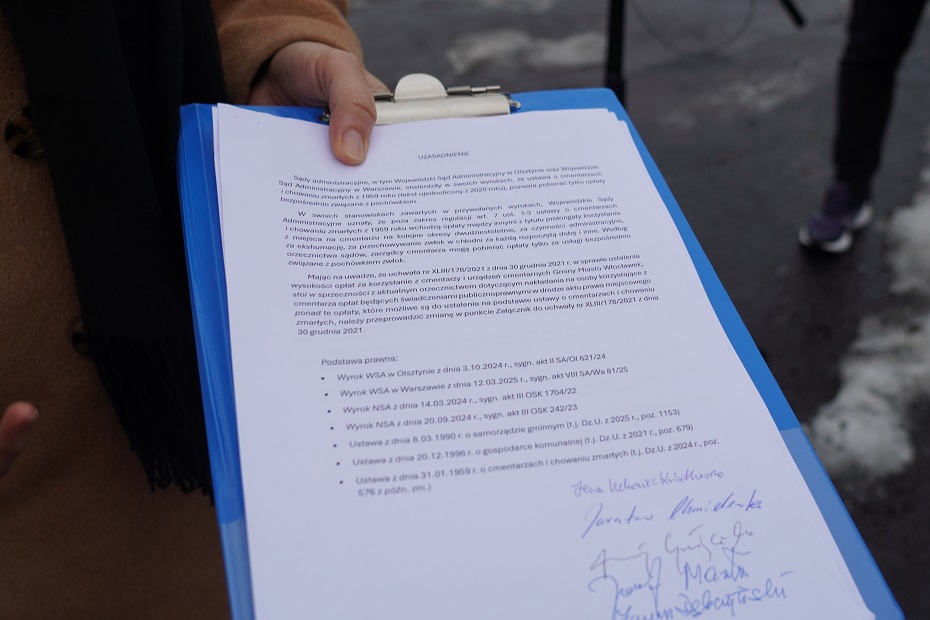 UZASADNIENIE
Sądy administracyjne, w tym Wojewódzki Sąd Administracyjny w Olsztynie oraz Wojewódzki
Sąd Administracyjny w Warszawie, stwierdziły w swoich wyrokach, że ustawa o cmentarzach
i chowaniu zmarłych z 1959 roku (tekst ujednolicony z 2020 roku), pozwala pobierać tylko opłaty
bezpośrednio związane z pochówkiem.
W swoich stanowiskach zawartych w przywołanych wyrokach, Wojewódzkie Sądy
Administracyjne uznały, że poza zakres regulacji art. 7 ust. 1-3 ustawy o cmentarzach
i chowaniu zmarłych z 1959 roku wchodzą opłaty między innymi z tytułu prolongaty korzystania
z miejsca na cmentarzu na kolejne okresy dwudziestoletnie, za czynności administracyjne,
za ekshumację, za przechowywanie zwłok w chłodni za każdą rozpoczętą dobę i inne. Według
orzecznictwa sądów, zarządcy cmentarza mogą pobierać opłaty tylko za usługi bezpośrednio
związane z pochówkiem zwłok.
Mając na uwadze, że uchwała nr XLIII/178/2021 z dnia 30 grudnia 2021 r. w sprawie ustalenia
wysokości opłat za korzystanie z cmentarzy i urządzeń cmentarnych Gminy Miasto Włocławek,
stoi w sprzeczności z aktualnym orzecznictwem dotyczącym nakładania na osoby korzystające z
cmentarza opłat będących świadczeniami publicznoprawnymi w drodze aktu prawa miejscowego
ponad te opłaty, które możliwe są do ustalenia na podstawie ustawy o cmentarzach i chowaniu
zmarłych, należy przeprowadzić zmianę w punkcie Załącznik do uchwały nr XLIII/178/2021 z dnia
30 grudnia 2021.
Podstawa prawna:
• Wyrok WSA w Olsztynie z dnia 3.10.2024 r., sygn. akt II SA/Ol 621/24
• Wyrok WSA w Warszawie z dnia 12.03.2025 r., sygn. akt VIII SA/Wa 81/25
• Wyrok NSA z dnia 14.03.2024 r., sygn. akt III OSK 1704/22
• Wyrok NSA z dnia 20.09.2024 r., sygn. akt III OSK 242/23
• Ustawa z dnia 8.03.1990 r. o samorządzie gminnym (t.j. Dz.U. z 2025 r., poz. 1153)
• Ustawa z dnia 20.12.1996 r. o gospodarce komunalnej (t.j. Dz.U. z 2021 r., poz. 679)
• Ustawa z dnia 31.01.1959 r. o cmentarzach i chowaniu zmarłych (t.j. Dz.U. z 2024 r., poz.
576 z późn. zm.)
Jarosław Chmielewski
Józef Mazur